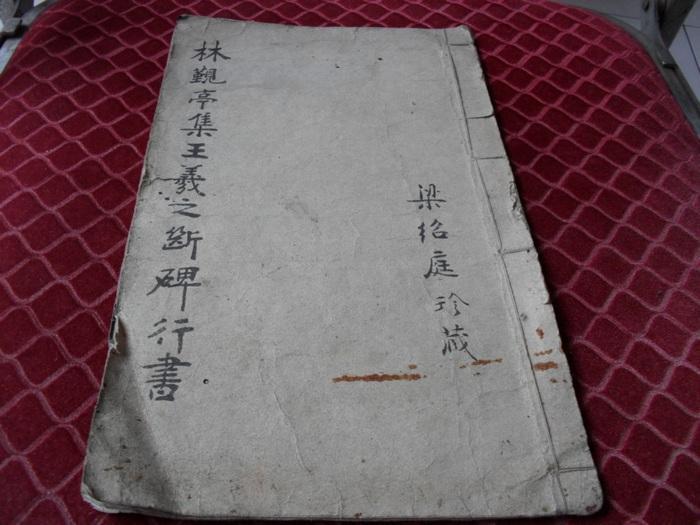 梁紹庭珍藏
林覲亭集王羲之断碑行書